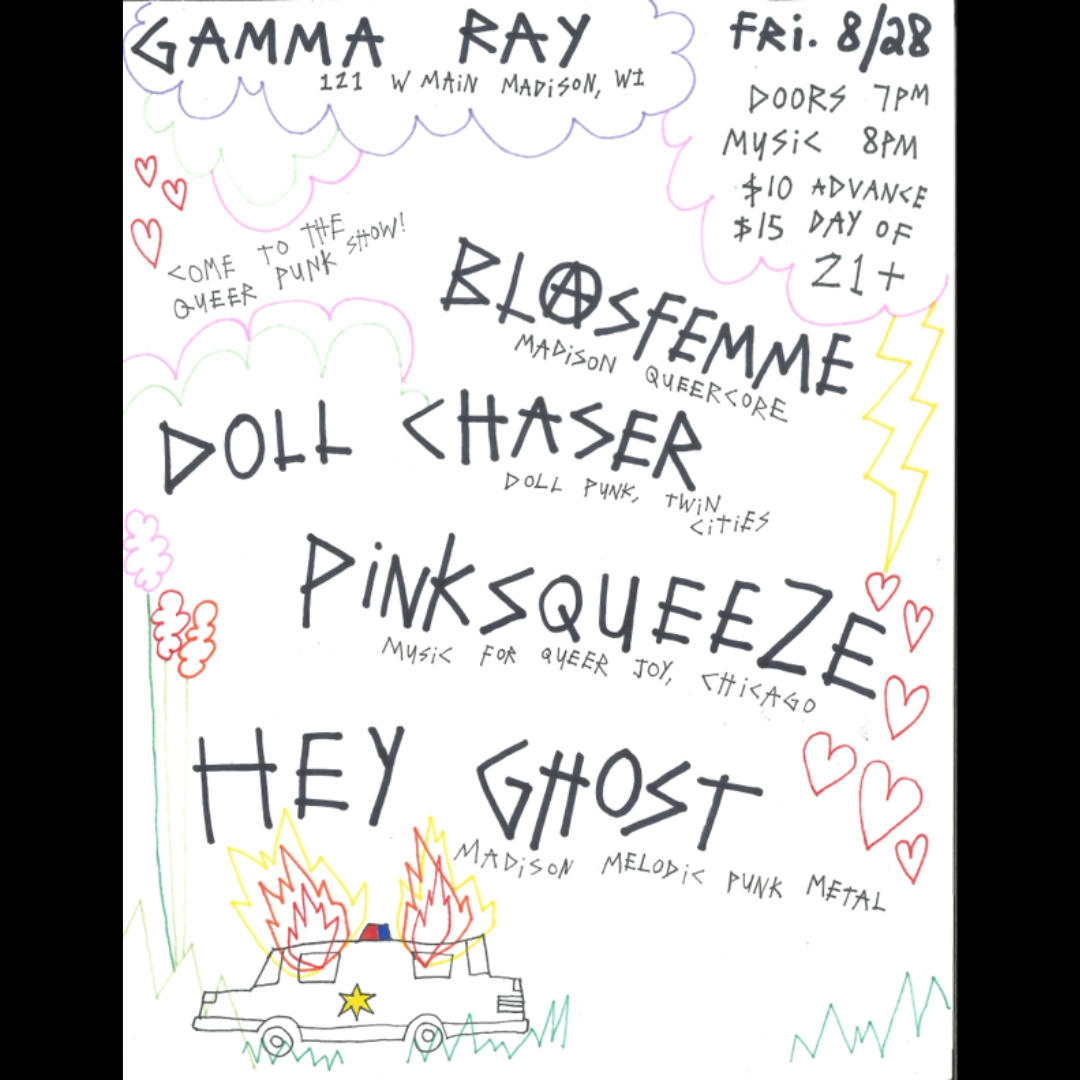 GAMMA RAY
121 W MAIN MADISON, WI
FRI. 8/28
DOORS 7PM
MUSIC 8PM
$10 ADVANCE
$15 DAY OF
21+
COME TO THE
QUEER PUNK SHOW!
BLASFEMME
MADISON QUEERCORE
DOLL CHASER
DOLL PUNK, TWIN
CITIES
PINKSQUEEZE
MUSIC FOR QUEER JOY, CHICAGO
HEY GHOST
MADISON MELODIC PUNK METAL